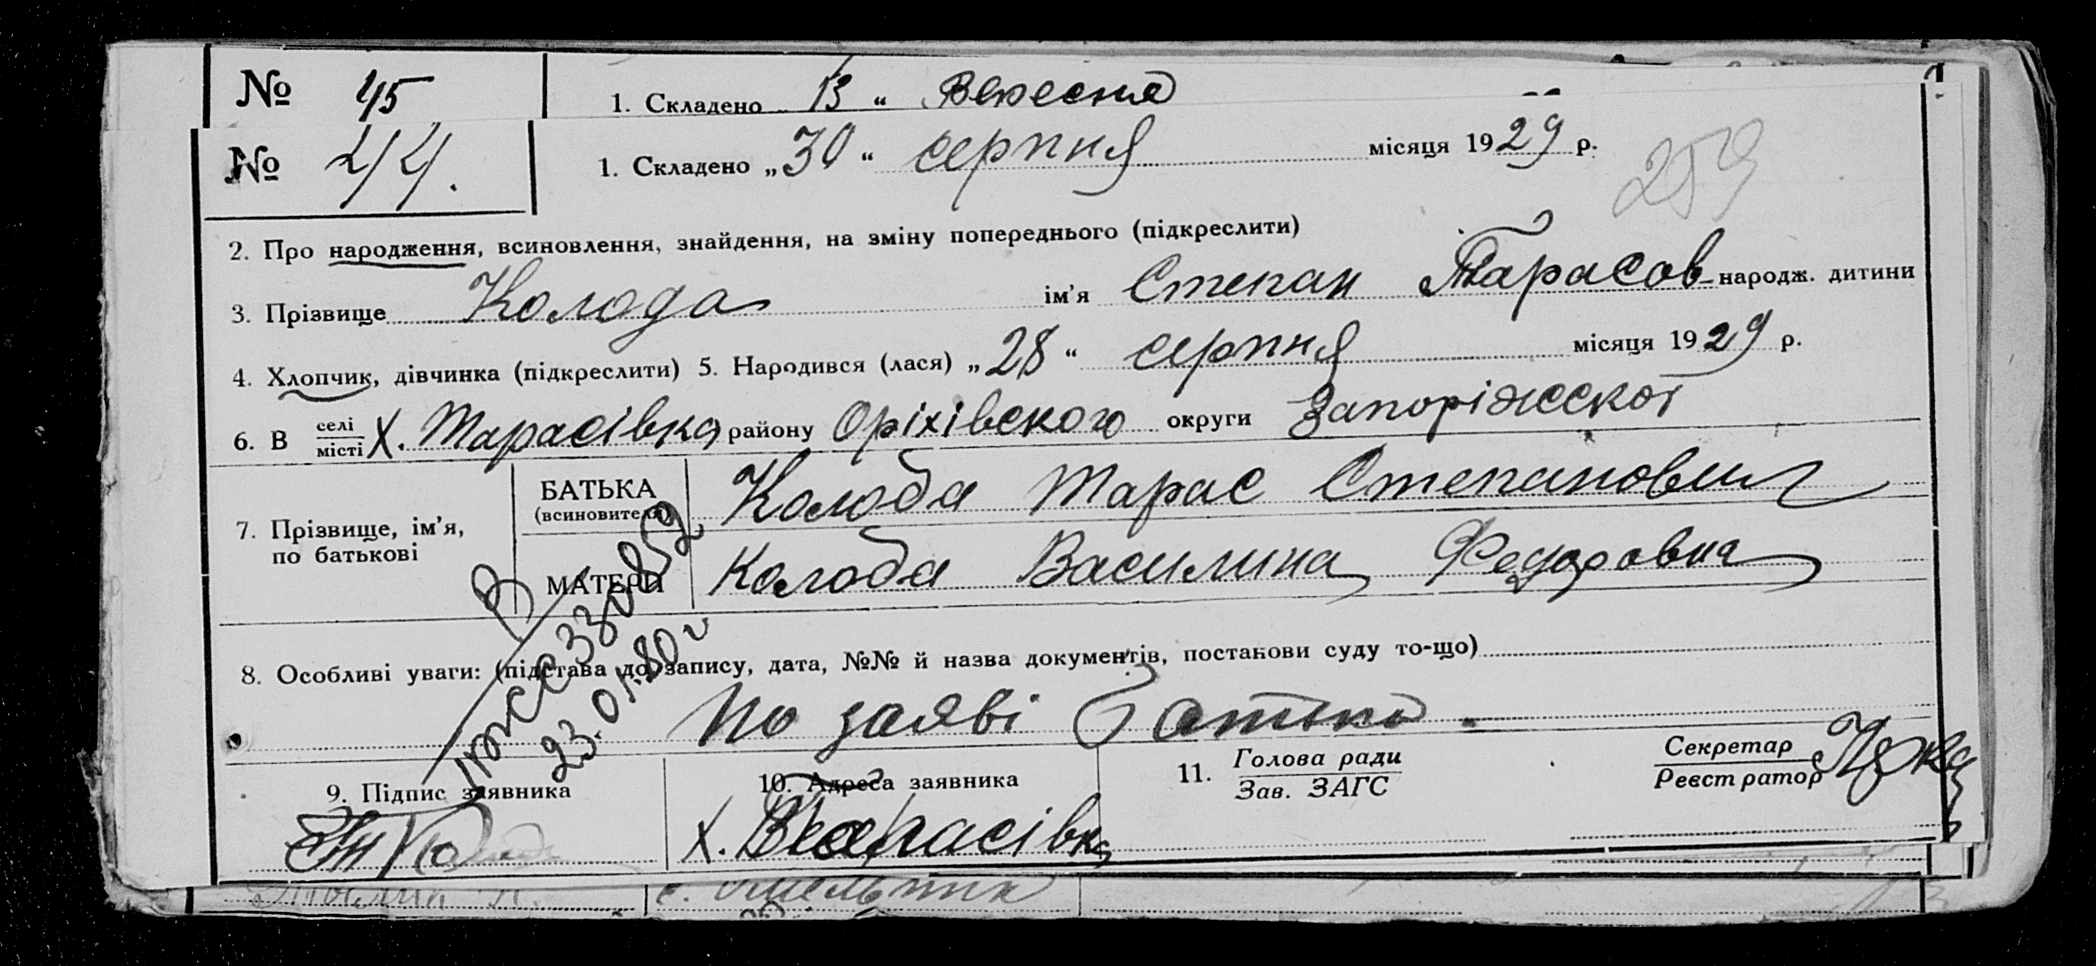 № 45 1. Складено „ 13 “ Вересня
№ 44. 1. Складено „30“ серпня місяця 1929 р.
259
2. Про народження, всиновлення, знайдення, на зміну попереднього (підкреслити)
3. Прізвище Колода ім'я Степан Тарасов народж. дитини
4. Хлопчик, дівчинка (підкреслити) 5. Народився (лася) „28“ серпня місяця 1929 р.
6. В селі/місті Х. Тарасівка району Оріхівского округи Запоріжскої
7. Прізвище, ім'я, по батькові
БАТЬКА (всиновителя) Колода Тарас Степанович
МАТЕРИ Колода Василина Федоровна
8. Особливі уваги: (підстава до запису, дата, №№ й назва документів, постанови суду то-що)
По заяві батька.
23.01.80 г
9. Підпис заявника 10. Адреса заявника 11. Голова ради Секретар
Зав. ЗАГС Реєстратор
х. Тарасівка